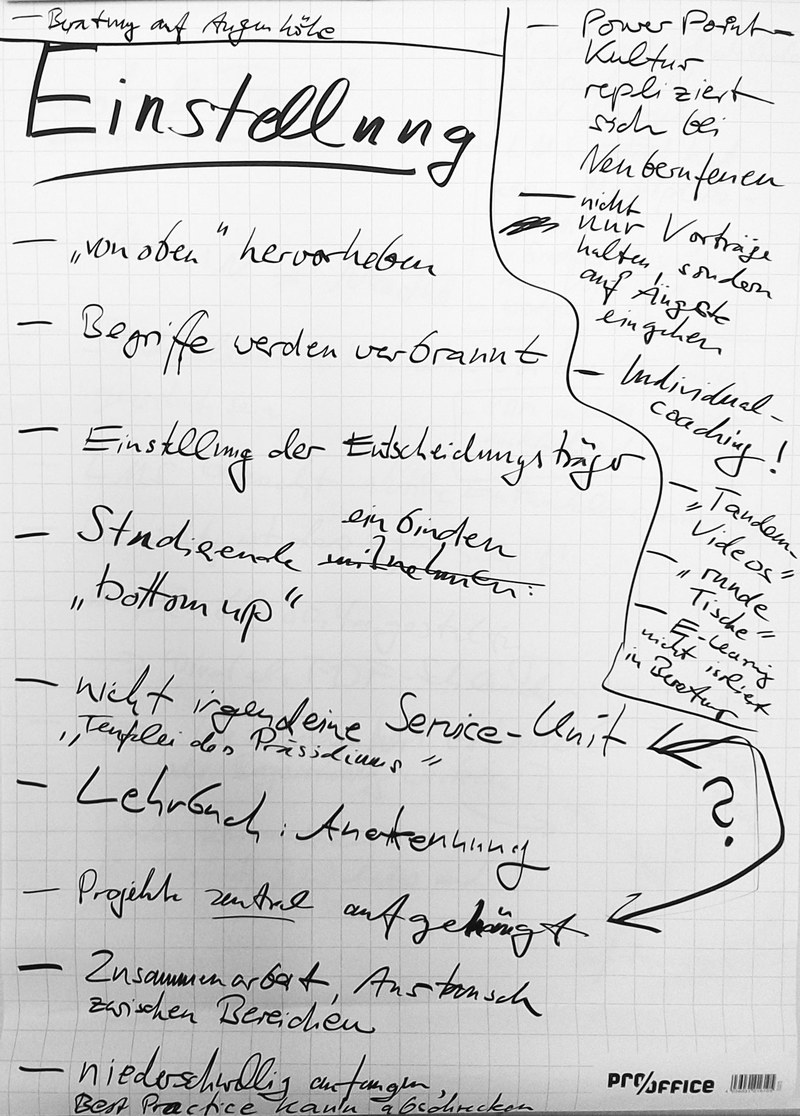 – Beratung auf Augenhöhe
Einstellung
– „von oben" hervorheben
– Begriffe werden verbrannt
– Einstellung der Entscheidungsträger
einbinden
– Studierende mitnehmen:
„bottom up"
– nicht irgendeine Service-Unit
„Tempel des Präsidiums"
– Lehrbuch: Anerkennung
– Projekte zentral aufgehängt
– Zusammenarbeit, Austausch
zwischen Bereichen
– niederschwellig anfangen,
Best Practice kann abschrecken
– PowerPoint-
Kultur
repliziert
sich bei
Neuberufenen
– nicht
nur Vorträge
halten, sondern
auf Ängste
eingehen
– Individual-
coaching!
– „Tandem-
Videos"
– „runde
Tische"
– E-Learning
nicht isoliert
in Beratung
?
PRO/OFFICE